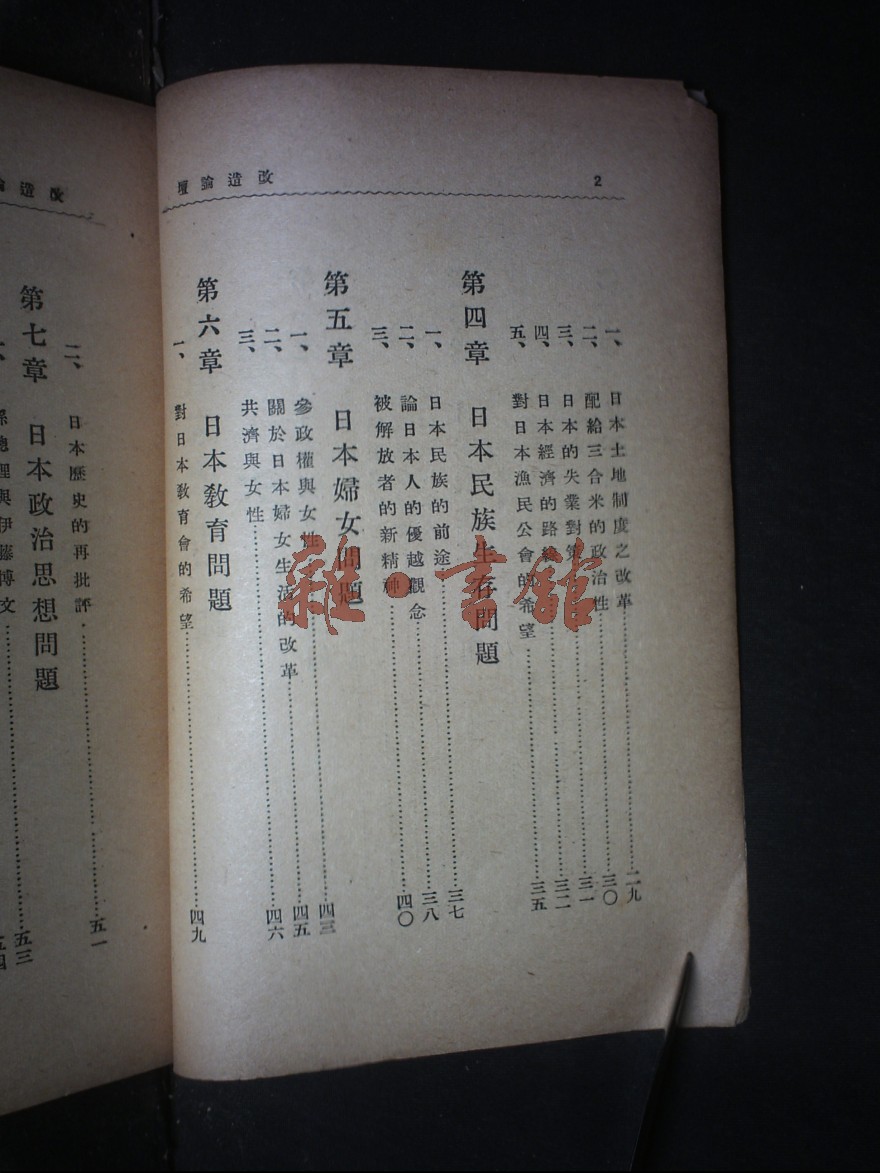 改造論壇
2
一、日本土地制度之改革……二九
二、配給三合米的政治性……三〇
三、日本的失業對策……三一
四、日本經濟的路線……三二
五、對日本漁民公會的希望……三五
第四章 日本民族生存問題
一、日本民族的前途……三七
二、論日本人的優越觀念……三八
三、被解放者的新精神……四〇
第五章 日本婦女問題……四三
一、參政權與女性……四五
二、關於日本婦女生活的改革……四六
三、共濟與女性
第六章 日本教育問題
一、對日本教育會的希望……四九
改造論
二、日本歷史的再批評……五一
第七章 日本政治思想問題……五三
孫總理與伊藤博文……五四
雜·書館